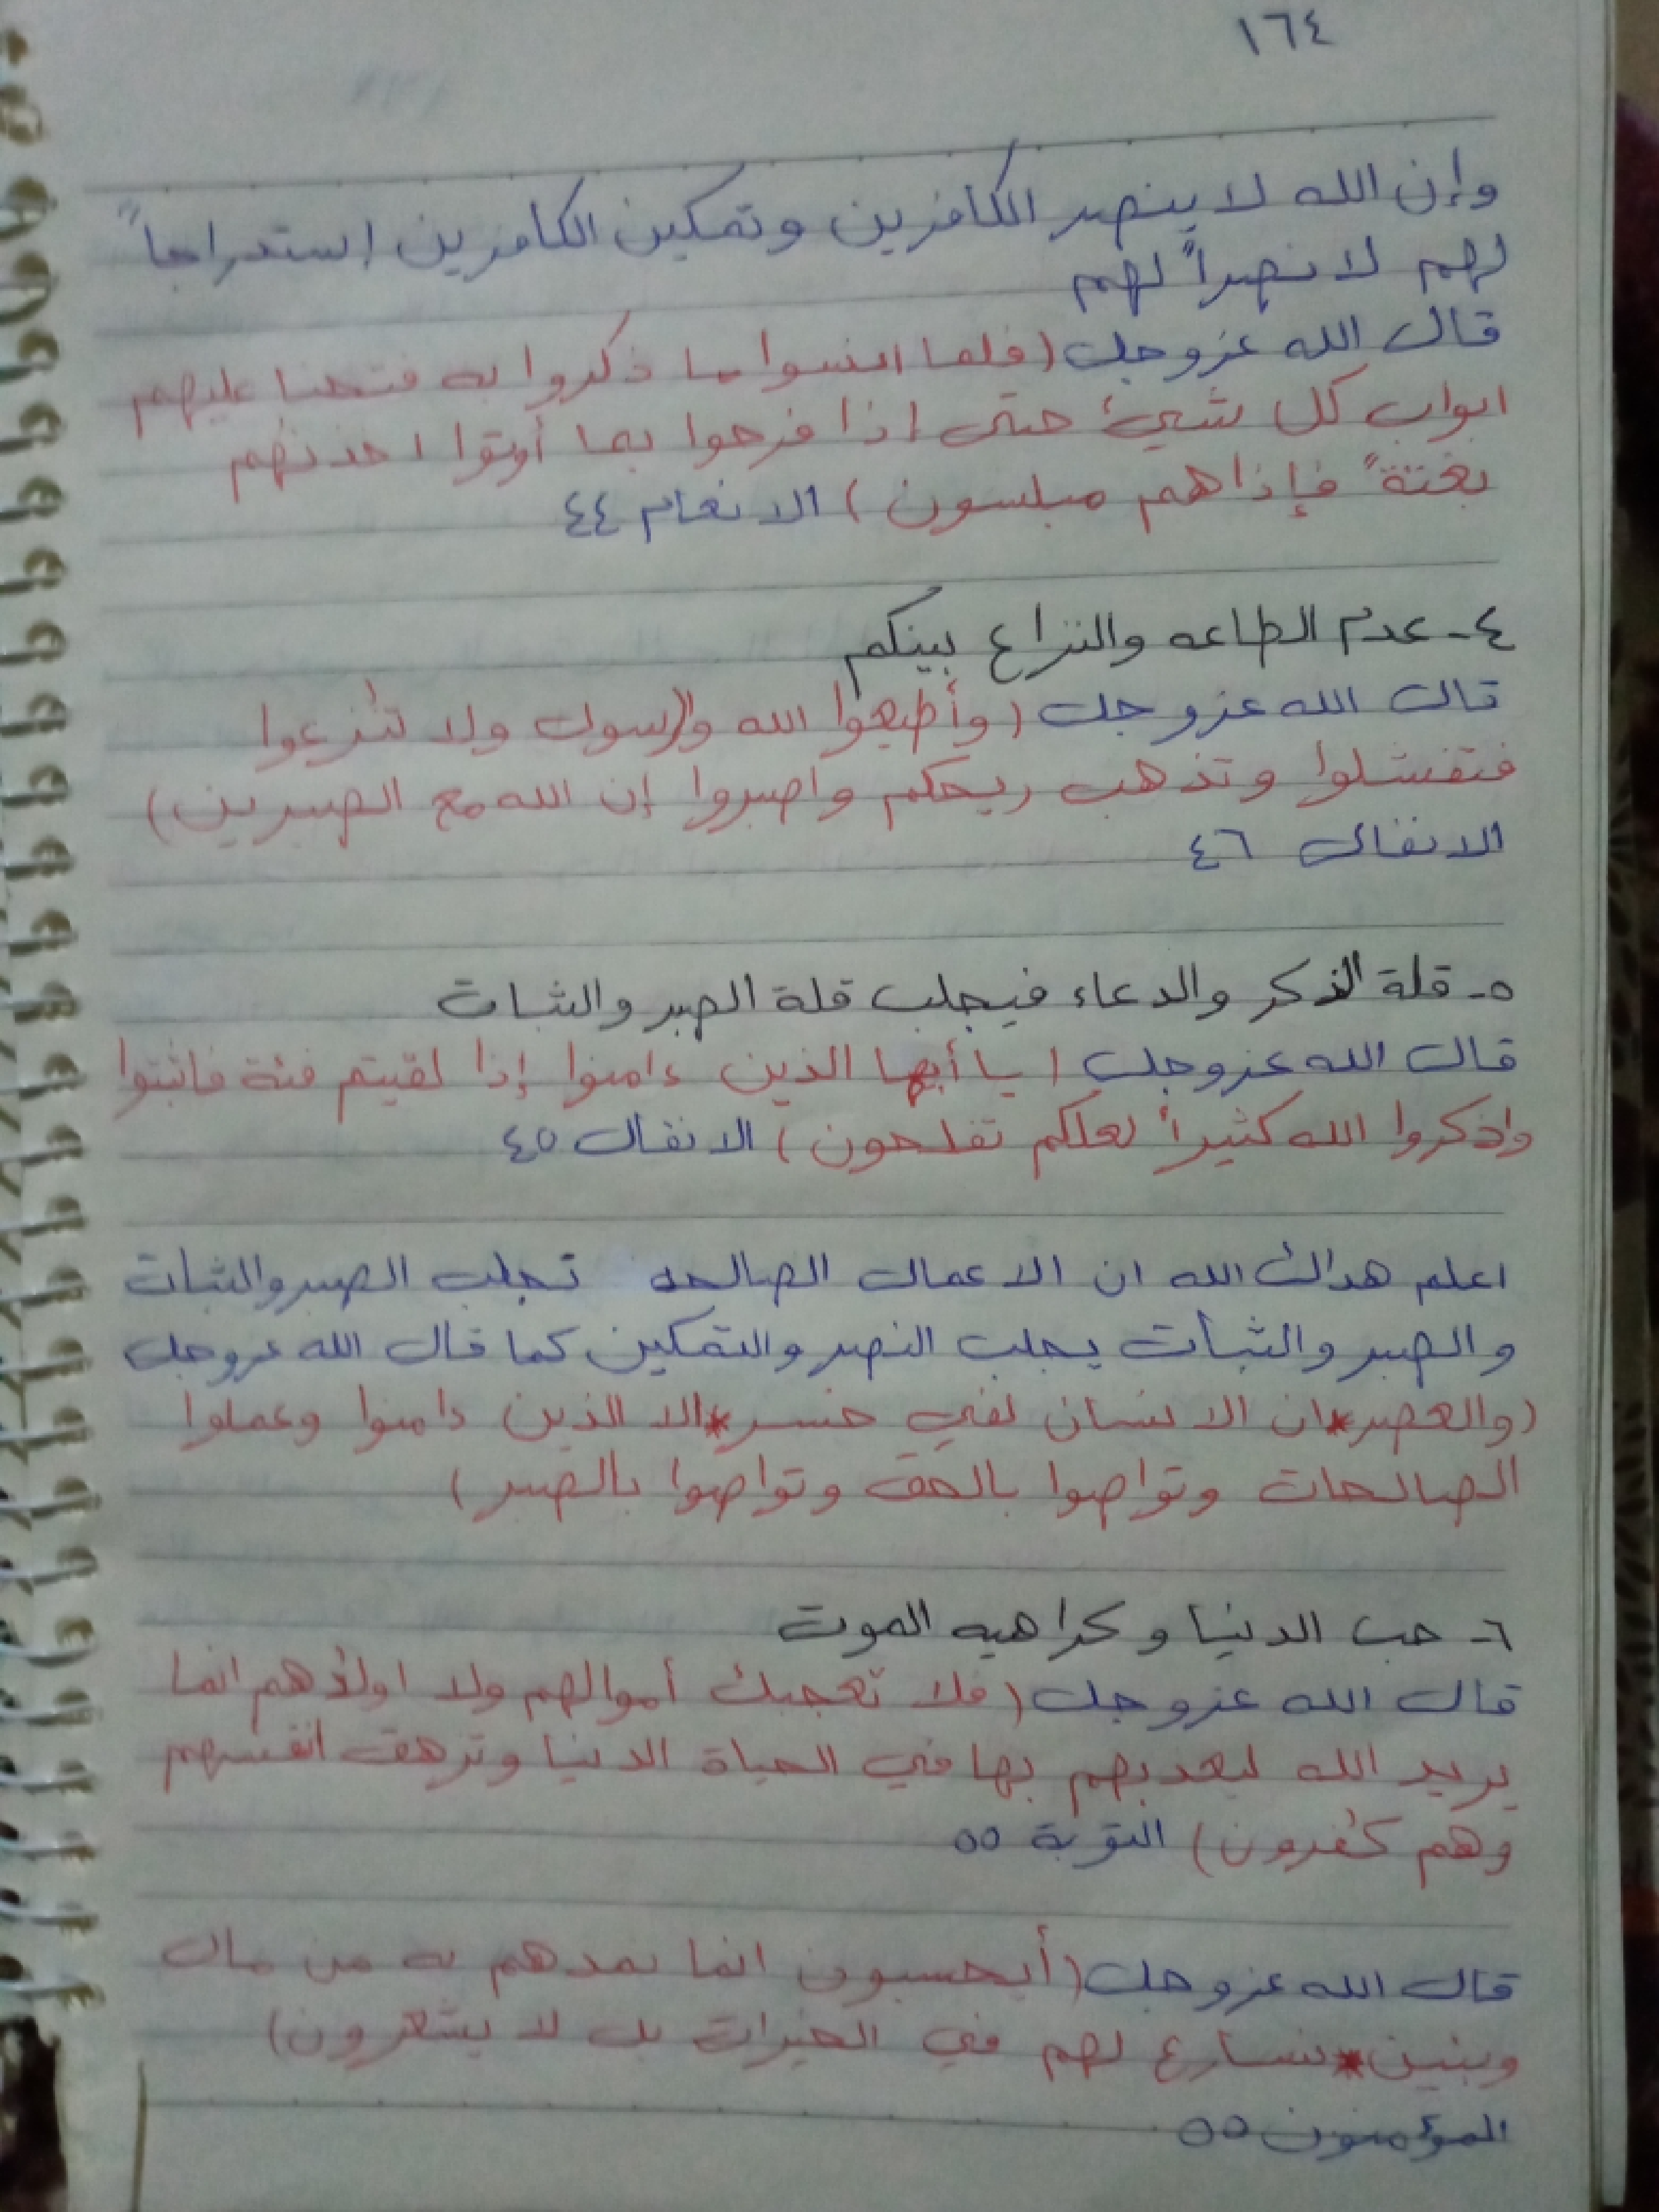 ١٦٤
وإن الله لا ينصر الكافرين وتمكين الكافرين إستدراجاً
لهم لا نصراً لهم
قال الله عزوجل (فلما انسوا ما ذكروا به فتحنا عليهم
ابواب كل شيئ حتى إذا فرحوا بما أوتوا اخذنهم
بغتةً فإذا هم مبلسون) الانعام ٤٤
٤- عدم الطاعه والنزاع بينكم
قال الله عزوجل (وأطيعوا الله والرسول ولا تنٰزعوا
فتفشلوا وتذهب ريحكم واصبروا إن الله مع الصبرين)
الانفال ٤٦
٥- قلة الذكر والدعاء فيجلب قلة الصبر والثبات
قال الله عزوجل (يا أيها الذين ءامنوا إذا لقيتم فئة فاثبتوا
واذكروا الله كثيراً لعلكم تفلحون) الانفال ٤٥
اعلم هداك الله ان الاعمال الصالحه تجلب الصبر والثبات
والصبر والثبات يجلب النصر والتمكين كما قال الله عزوجل
(والعصر*ان الانسان لفي خسر*الا الذين ءامنوا وعملوا
الصالحات وتواصوا بالحق وتواصوا بالصبر)
٦- حب الدنيا وكراهيه الموت
قال الله عزوجل (فلا تعجبك أموالهم ولا اولٰدهم انما
يريد الله ليعذبهم بها في الحياة الدنيا وتزهق انفسهم
وهم كٰفرون) التوبة ٥٥
قال الله عزوجل (أيحسبون انما نمدهم به من مال
وبنين*نسارع لهم في الخيرات بل لا يشعرون)
المؤمنون ٥٥